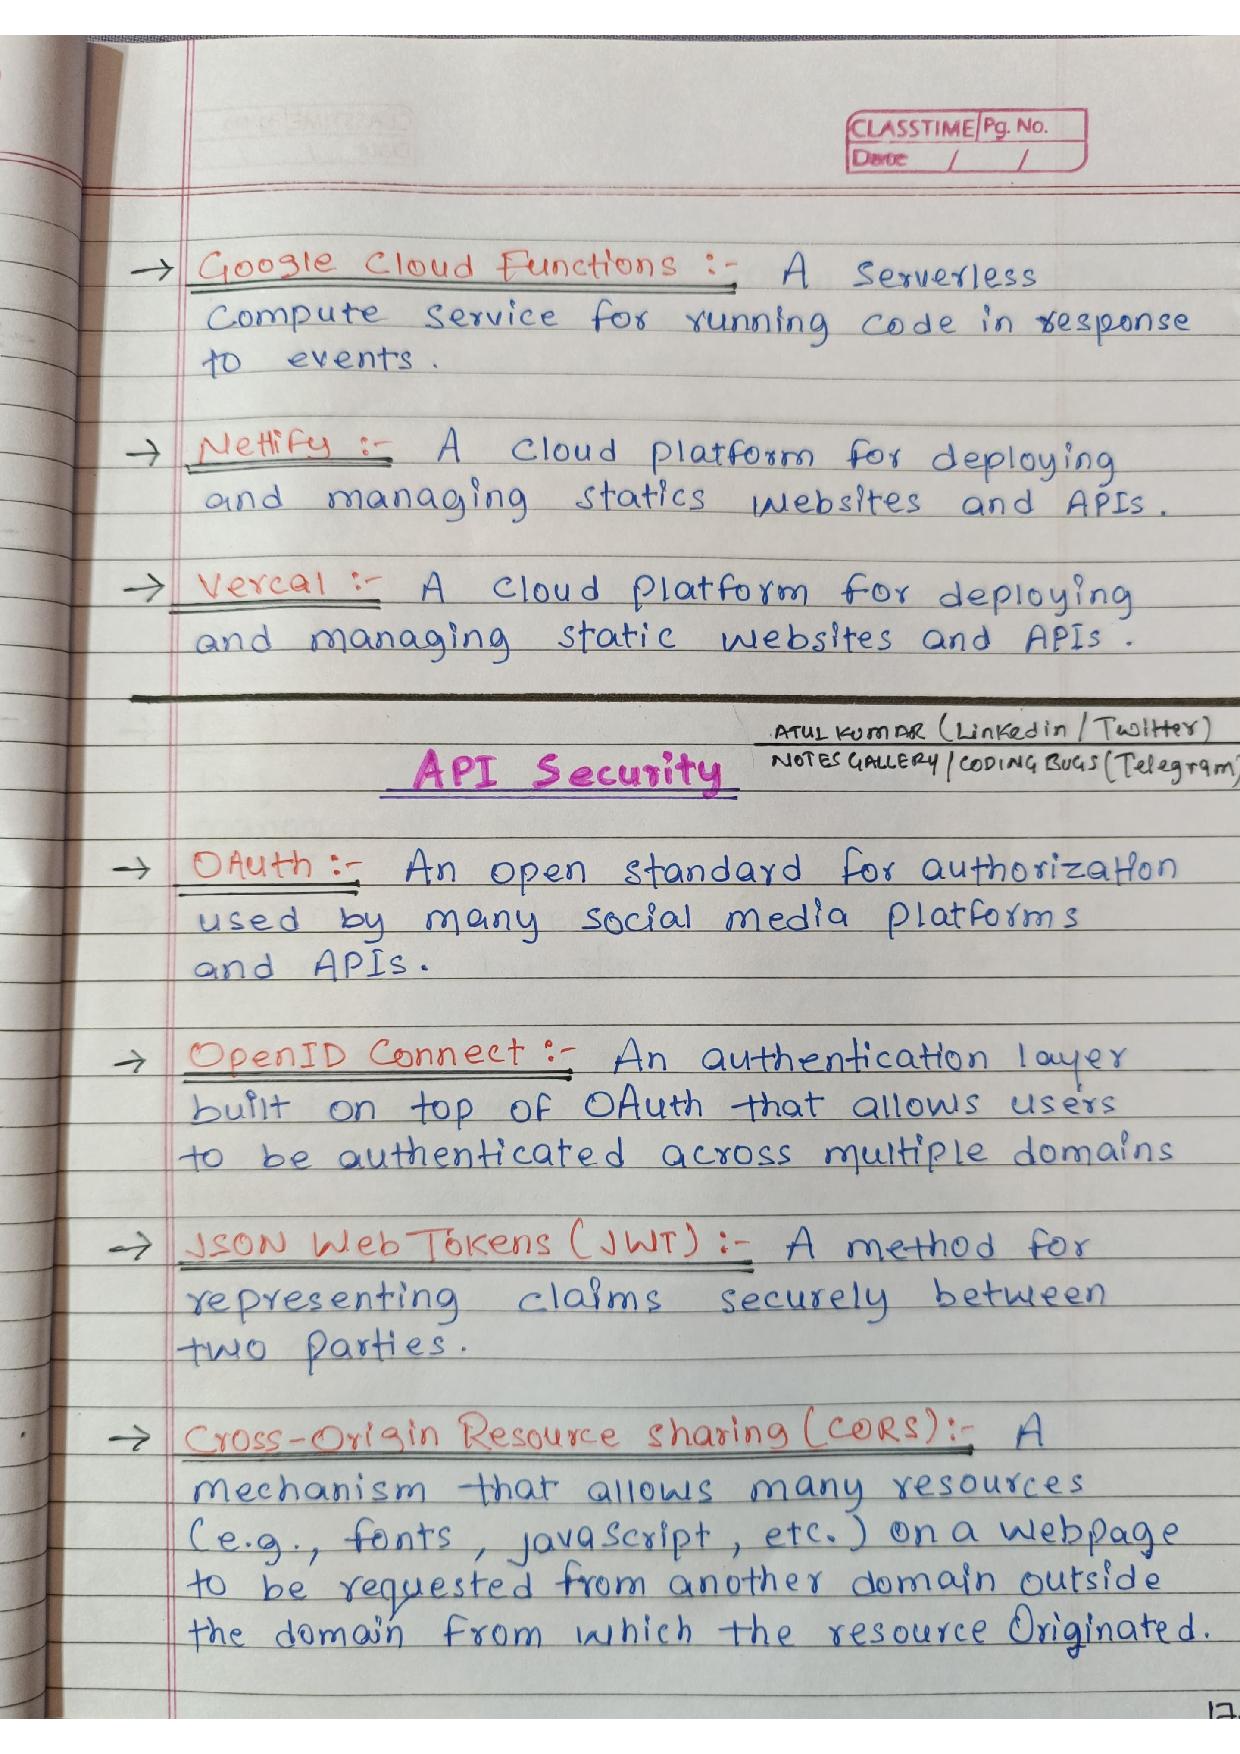 CLASSTIME Pg. No.
Date / /
→ Google Cloud Functions :- A Serverless
Compute service for running code in response
to events.
→ Netlify :- A Cloud platform for deploying
and managing statics websites and APIs.
→ Vercal :- A Cloud Platform for deploying
and managing static websites and APIs.
ATUL KUMAR (Linkedin / Twitter)
API Security NOTES GALLERY / CODING BUGS (Telegram)
→ OAuth :- An open standard for authorization
used by many social media platforms
and APIs.
→ OpenID Connect :- An authentication layer
built on top of OAuth that allows users
to be authenticated across multiple domains
→ JSON Web Tokens (JWT) :- A method for
representing claims securely between
two parties.
→ Cross-Origin Resource sharing (CORS) :- A
mechanism that allows many resources
(e.g., fonts, javascript, etc.) on a webpage
to be requested from another domain outside
the domain from which the resource Originated.
17